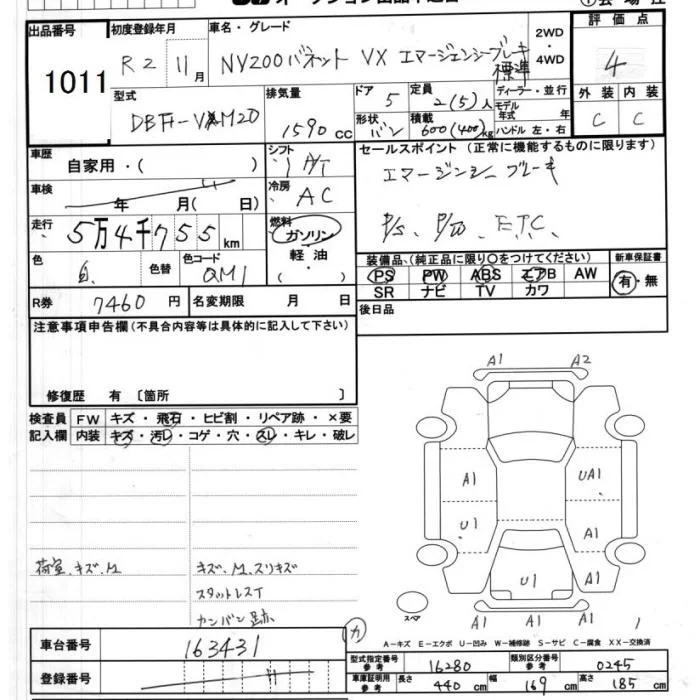 出品番号
1011
初度登録年月
R2 11月
車名・グレード
NV200バネット VX エマージェンシーブレーキ
標準
2WD
・
4WD
評価点
4
外装 内装
C C
型式
DBF-VM20
排気量
1590cc
ドア
5
定員
2(5)人
形状
バン
積載
600(400)kg
ディーラー・並行
モデル
年式 年
ハンドル 左・右
車歴
自家用・( )
シフト
A/T
車検
年 月( 日)
冷房
AC
走行
5万4千755km
燃料
ガソリン
軽油
・( ・)
色
白
色替
色コード
QM1
セールスポイント (正常に機能するものに限ります)
エマージェンシーブレーキ
P/S、P/W、E.T.C、
装備品、(純正品に限り○をつけてください)
PS PW ABS エアB AW
SR ナビ TV カワ
新車保証書
有・無
R券 7460円
名変期限 月 日
後日品
注意事項申告欄(不具合内容等は具体的に記入して下さい)
修復歴 有 〔箇所 〕
検査員
記入欄
FW キズ・飛石・ヒビ割・リペア跡・×要
内装 キズ・汚レ・コゲ・穴・スレ・キレ・破レ
荷室、キズ、M
キズ、M、スリキズ
スタットレスT
カンバン跡
A1 A2
A1 UA1
U1 A1
U1 A1
A1 A1 A1
スペア
A-キズ E-エクボ U-凹み W-補修跡 S-サビ C-腐食 XX-交換済
車台番号
163431
登録番号
カ
型式指定番号
参考
16280
類別区分番号
参考
0245
車庫証明用
参考
長さ 440cm 幅 169cm 高さ 185cm